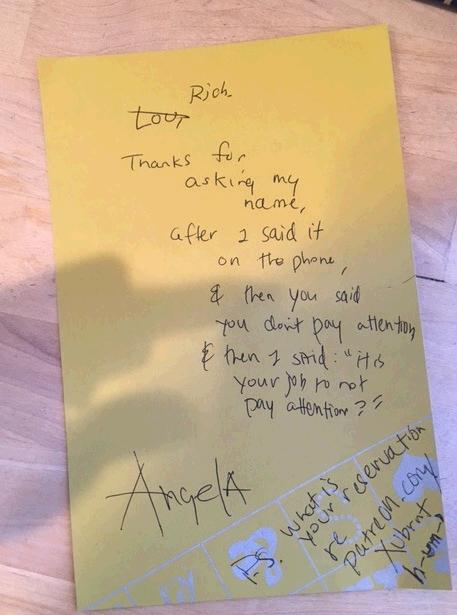 Rich
Lou,
Thanks for
asking my
name,
after I said it
on the phone,
& then you said
you don't pay attention,
& then I said: "it is
your job to not
pay attention?"
Angela
P.S. what is
your reservation
re
patreon.com/